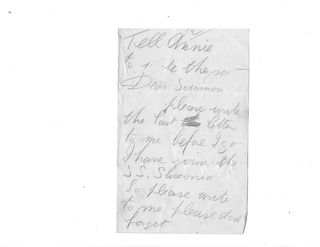 Tell Annie
to these
Dear Solomon
please write
the last letter
to me before I go
I have the
S.S.
So please write
to me please dont
forget